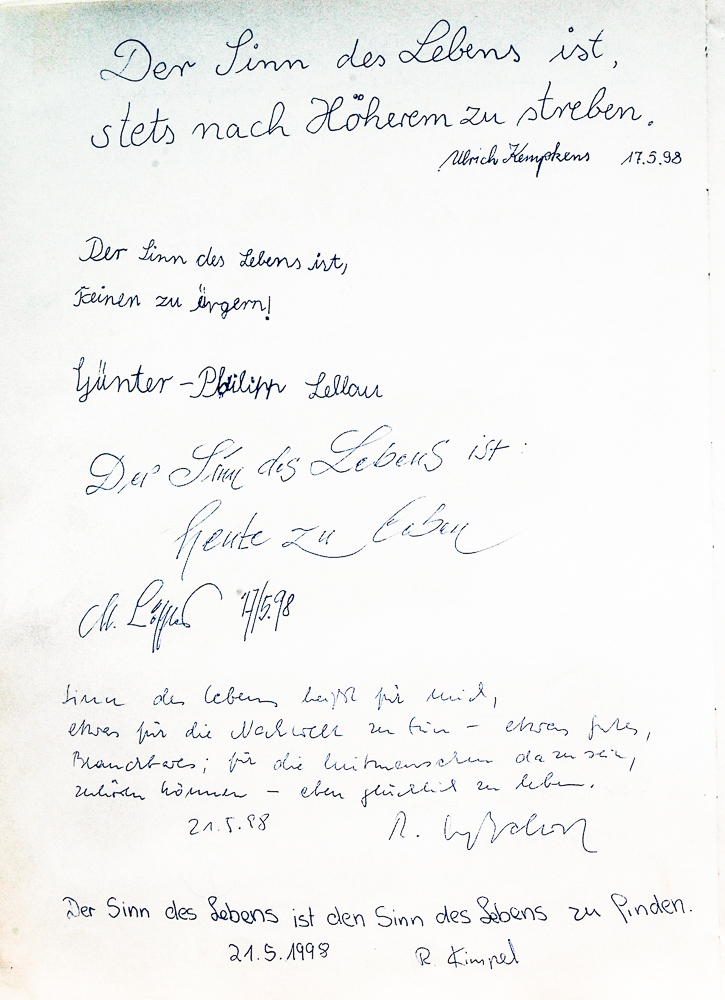 Der Sinn des Lebens ist,
stets nach Höherem zu streben.
Ulrich Kempkens 17.5.98
Der Sinn des Lebens ist,
Keinen zu ärgern!
Günter-Philipp
Der Sinn des Lebens ist:
heute zu leben
M. 17/5.98
Sinn des Lebens heißt für mich,
etwas für die Nachwelt zu tun – etwas Gutes,
Brauchbares; für die Mitmenschen da zu sein,
zuhören können – eben glücklich zu leben.
21.5.98 R.
Der Sinn des Lebens ist den Sinn des Lebens zu finden.
21.5.1998 R. Kimpel